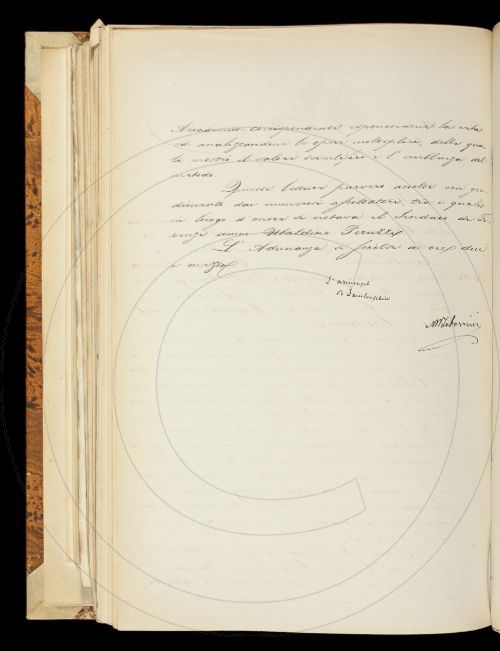 Accademico corrispondente esponendone la vita
ed analizzandone le opere molteplici, delle qua-
li mostrò il valore scientifico e l'eccellenza del
metodo.
Queste letture parvero accolte con gra-
dimento dai numerosi ascoltatori, tra i quali
in luogo d'onore si notava il Sindaco di Fi-
renze comm Ubaldino Peruzzi
L'Adunanza si sciolse a ore due
e mezzo